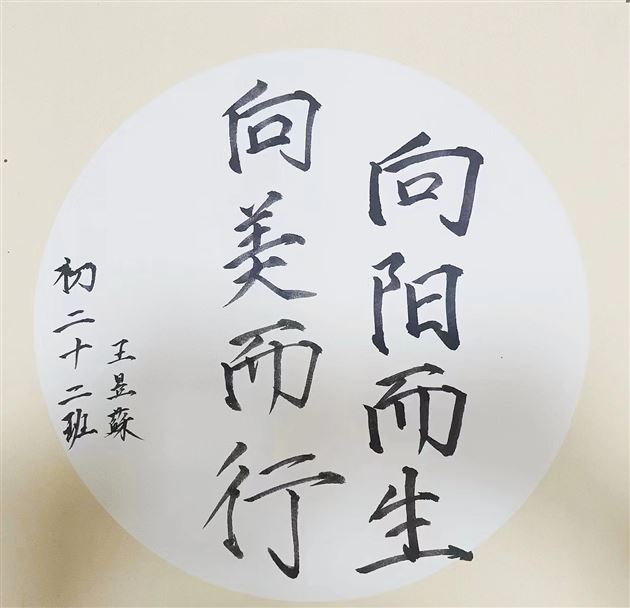 向阳而生
向美而行
王昱蘇
初二十二班